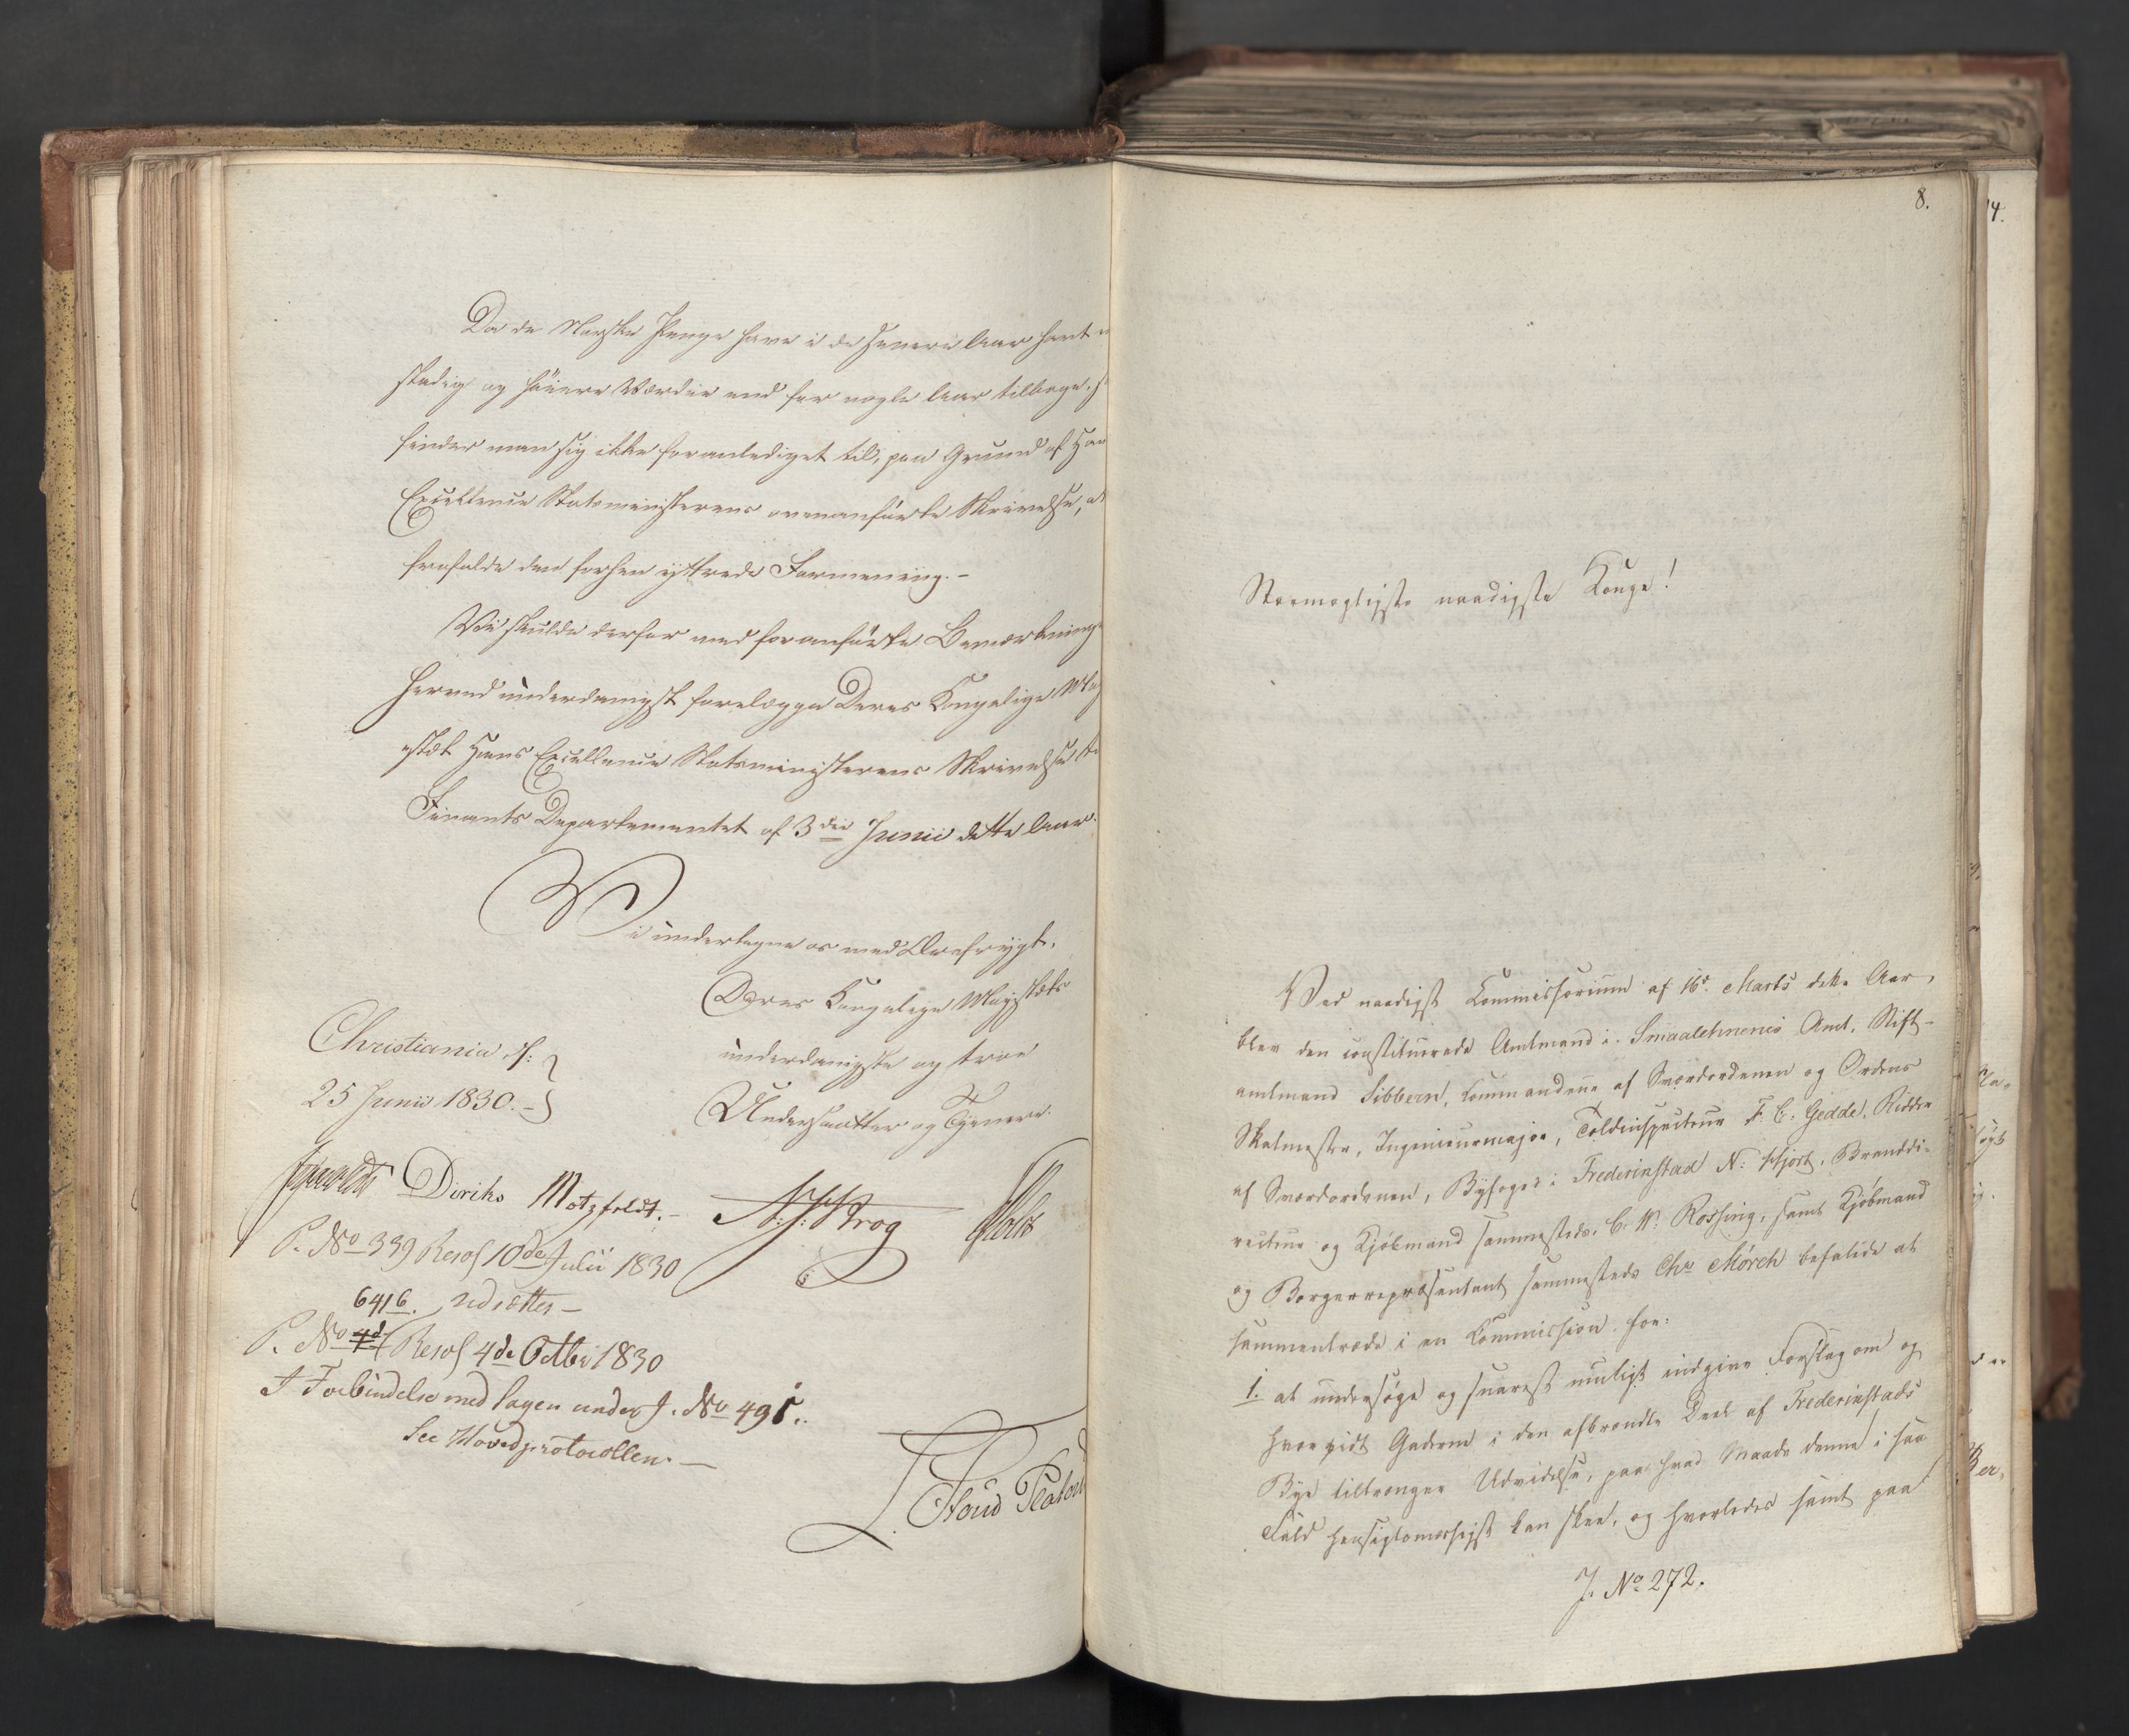 Da de Norske Penge have i de senere Aar havt
stadig og høiere Værdie end for nogle Aar tilbage,
finder man sig ikke foranlediget til, paa Grund af Han
Excellence Statsministerens ovenanførte Skrivelse, at
frafalde den forhen yttrede Formening.-
Vi skulde derfor med foranførte Bemærkninge
herved underdanigst forelægge Deres Kongelige Maj
estæt Hans Excellence Statsministerens Skrivelse til
Finants Departementet af 3die Junii dette Aar.
Vi undertegne os med Ærefrygt,
Deres Kongelige Majestæts
underdanigste og troe
Undersaatter og Tjenere.
Christiania, d:
25 Junii 1830.-
Diriks Motzfeldt.- Krog Holst
P. No 339 Resol 10de Julii 1830
6416. udsættes-
P. No 4d Resol 4de Octbr 1830
I Forbindelse med Sagen under J. No 491.
See Hovedprotocollen.-
8.
14.
Stormægtigste naadigste Konge!
Ved naadigst Commissorium af 16de Marts dette Aar,
blev den constituerede Amtmand i Smaalehnenes Amt, Stift-
amtmand Sibbern, Commandeur af Sværdordenen og Ordens
Skatmester, Ingenieurmajor, Toldinspecteur F. C. Gedde, Ridder
af Sværdordenen, Byfoged i Frederikstad N: Hjort, Branddi-
recteur og Kjøbmand sammesteds, C. W. Rossing, samt Kjøbmand
og Borgerrepræsentant sammesteds Chr Mørch befalede at
sammentræde i en Commission for:
1. at undersøge og snarest muligt indgive Forslag om og
hvorvidt Gaderne i den afbrændte Deel af Frederikstads
Bye tiltrænger Udvidelse, paa hvad Maade denne i saa
Fald hensigtsmæssigst kan skee, og hvorledes samt paa
J. No 272.